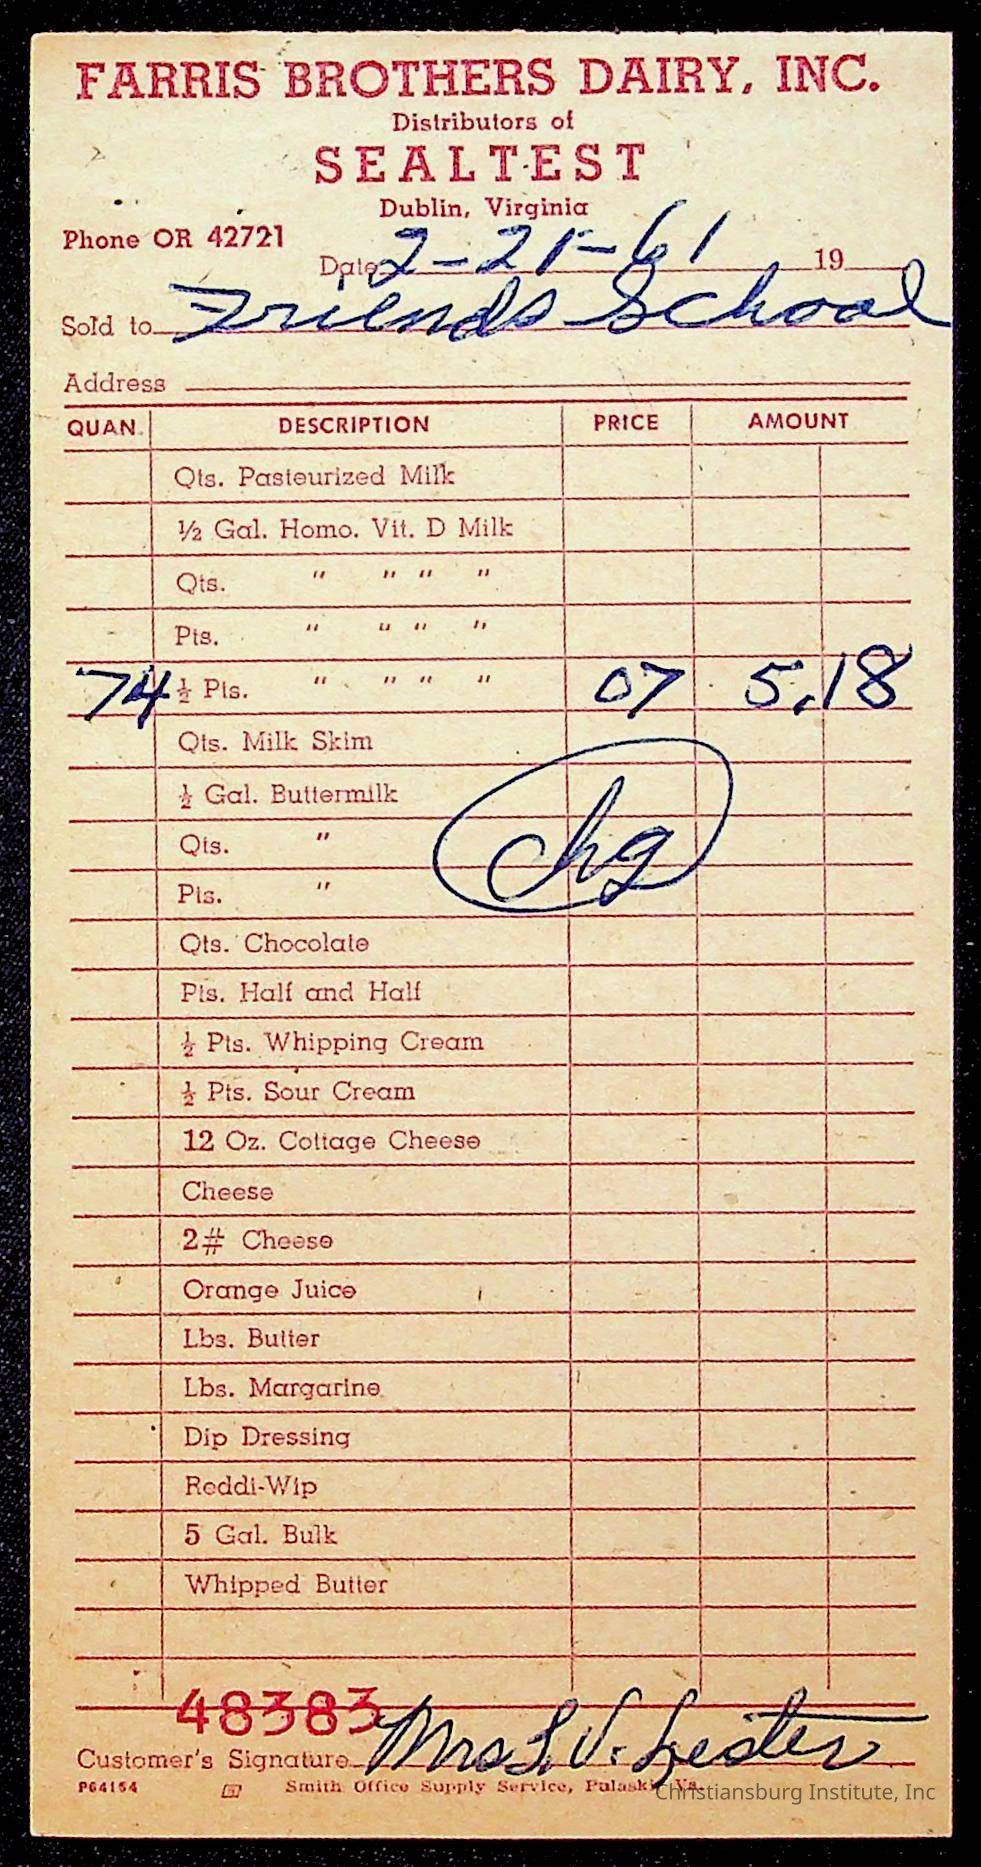 FARRIS BROTHERS DAIRY, INC.
Distributors of
SEALTEST
Dublin, Virginia
Phone OR 42721
Date 2-21-61 19
Sold to Friends School
Address
QUAN. DESCRIPTION PRICE AMOUNT
Qts. Pasteurized Milk
½ Gal. Homo. Vit. D Milk
Qts. " " " "
Pts. " " " "
74 ½ Pts. " " " " 07 5.18
Qts. Milk Skim
½ Gal. Buttermilk
chg
Qts. "
Pts. "
Qts. Chocolate
Pts. Half and Half
½ Pts. Whipping Cream
½ Pts. Sour Cream
12 Oz. Cottage Cheese
Cheese
2# Cheese
Orange Juice
Lbs. Butter
Lbs. Margarine
Dip Dressing
Reddi-Wip
5 Gal. Bulk
Whipped Butter
48383
Customer's Signature Mrs L. V. Lester
P64154 Smith Office Supply Service, Pulaski, Va.
Christiansburg Institute, Inc